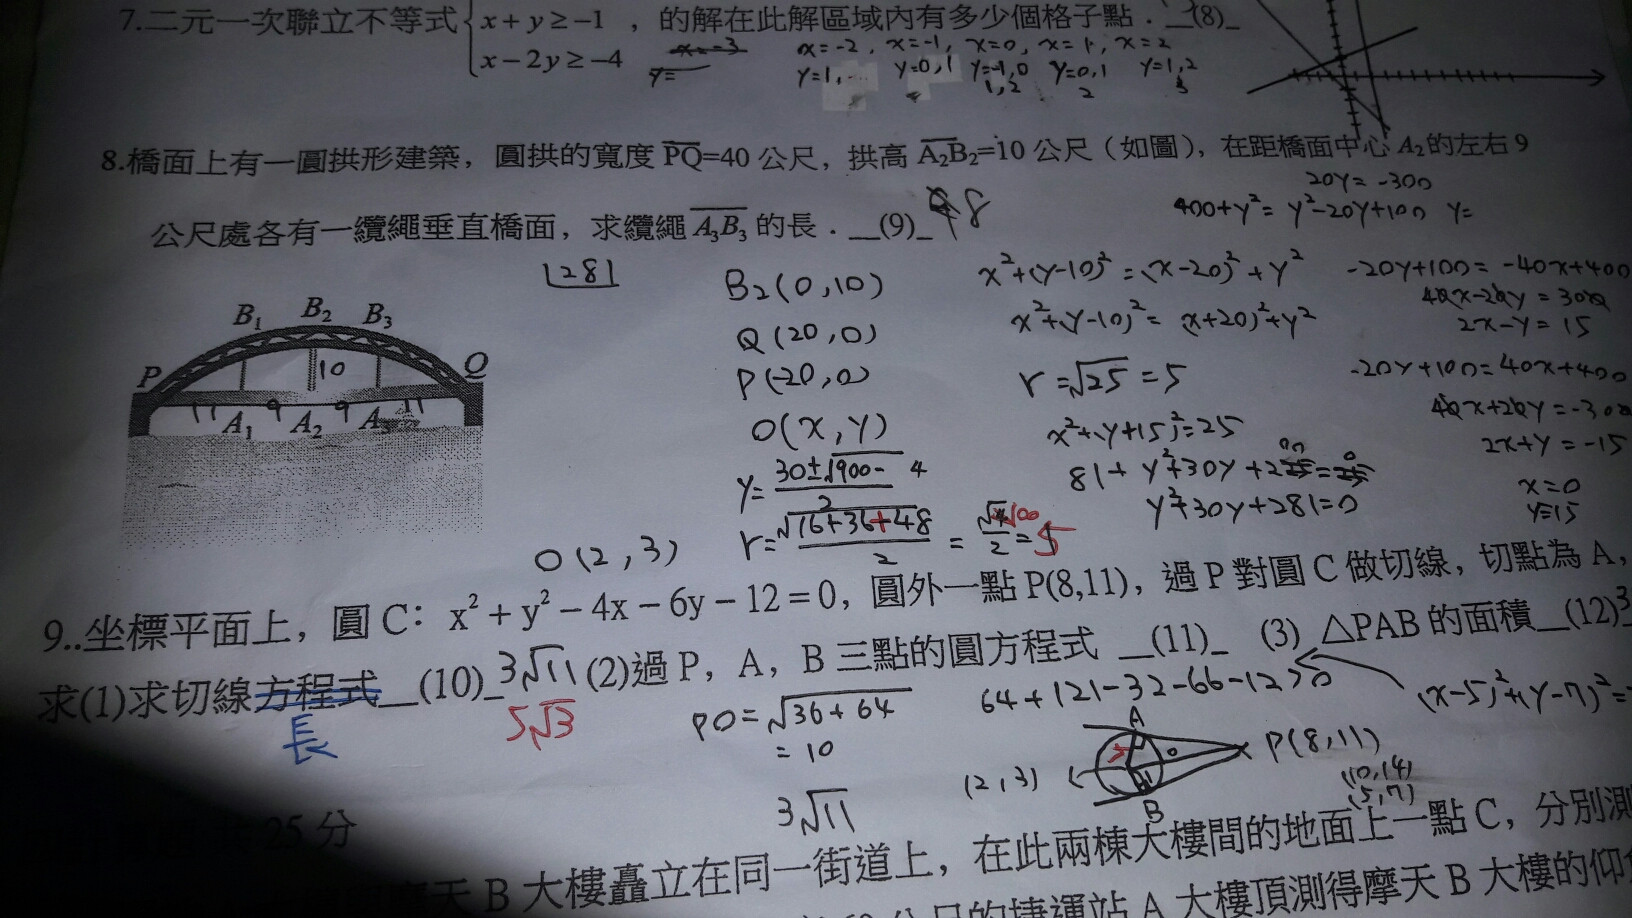 7.二元一次聯立不等式 { x + y ≥ -1 , 的解在此解區域內有多少個格子點．__(8)_
x - 2y ≥ -4
x=-2, x=-1, x=0, x=1, x=2
y=1, y=0,1 y=-1,0 y=0,1 y=1,2
1,2 2 3
8.橋面上有一圓拱形建築，圓拱的寬度 PQ=40 公尺，拱高 A₂B₂=10 公尺（如圖），在距橋面中心 A₂的左右 9
20y = -300
400+y² = y²-20y+100 y=
公尺處各有一纜繩垂直橋面，求纜繩 A₃B₃ 的長．__(9)_ 8
281
B₁ B₂ B₃
P 10 Q
11 9 9 11
A₁ A₂ A₃
B₂(0,10)
Q(20,0)
P(-20,0)
O(x,y)
y= 30±√900- 4
2
x²+(y-10)² = (x-20)²+y²
x²+(y-10)² = (x+20)²+y²
r=√25=5
x²+(y+15)²=25
81+y²+30y+225=25
y²+30y+281=0
-20y+100=-40x+400
40x-20y=300
2x-y=15
-20y+100=40x+400
40x+20y=-300
2x+y=-15
x=0
y=15
O(2,3) r= √16+36+48 / 2 = √100 / 2 = 5
9..坐標平面上，圓 C： x² + y² - 4x - 6y - 12 = 0，圓外一點 P(8,11)，過 P 對圓 C 做切線，切點為 A，
求(1)求切線方程式__(10)_ 3√11 (2)過 P，A，B 三點的圓方程式 __(11)_ (3) △PAB 的面積__(12)
長 5√3
PO=√36+64
=10
3√11
64+121-32-66-12>0
(x-5)²+(y-7)²=
A
(2,3) P(8,11)
(10,14)
(5,7)
B
25 分
天 B 大樓矗立在同一街道上，在此兩棟大樓間的地面上一點 C，分別測
公尺的捷運站 A 大樓頂測得摩天 B 大樓的仰